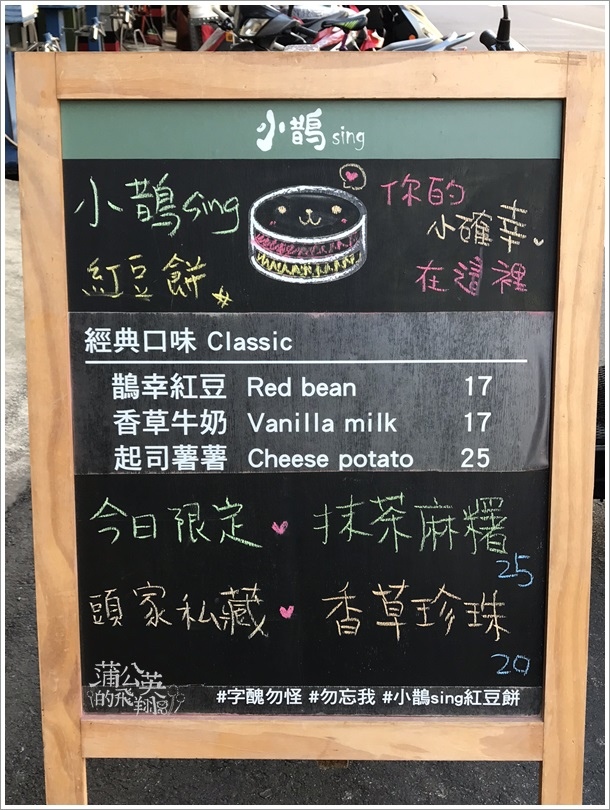 小鵲sing
小鵲sing
你的
小確幸
在這裡
紅豆餅
經典口味 Classic
鵲幸紅豆 Red bean 17
香草牛奶 Vanilla milk 17
起司薯薯 Cheese potato 25
今日限定 抹茶麻糬
25
頭家私藏 香草珍珠
20
蒲公英
的飛翔
#字醜勿怪 #勿忘我 #小鵲sing紅豆餅